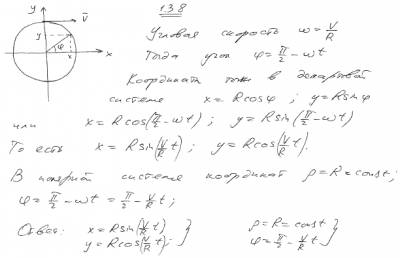 138
y
V
y
φ
x
x
Угловая скорость ω = V/R
Тогда угол φ = π/2 − ωt
Координата точки в декартовой
системе x = R cos φ ; y = R sin φ
или x = R cos(π/2 − ωt) ; y = R sin(π/2 − ωt)
То есть x = R sin(V/R t) ; y = R cos(V/R t).
В полярной системе координат ρ = R = const ;
φ = π/2 − ωt = π/2 − V/R t ;
Ответ: x = R sin(V/R t) } ρ = R = const }
y = R cos(V/R t) ; } φ = π/2 − V/R t }